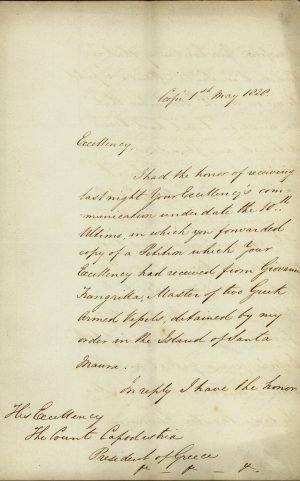 Corfu 1st May 1828.
Excellency,
I had the honor of receiving
last night Your Excellency's com-
munication under date the 10th
Ultimo, in which you forwarded
copy of a Petition which Your
Excellency had received from Giovanni
Master of two Greek
Armed Vessels, detained by my
order in the Island of Santa
Maura.
In reply I have the honor
His Excellency
The Count Capodistria
President of Greece